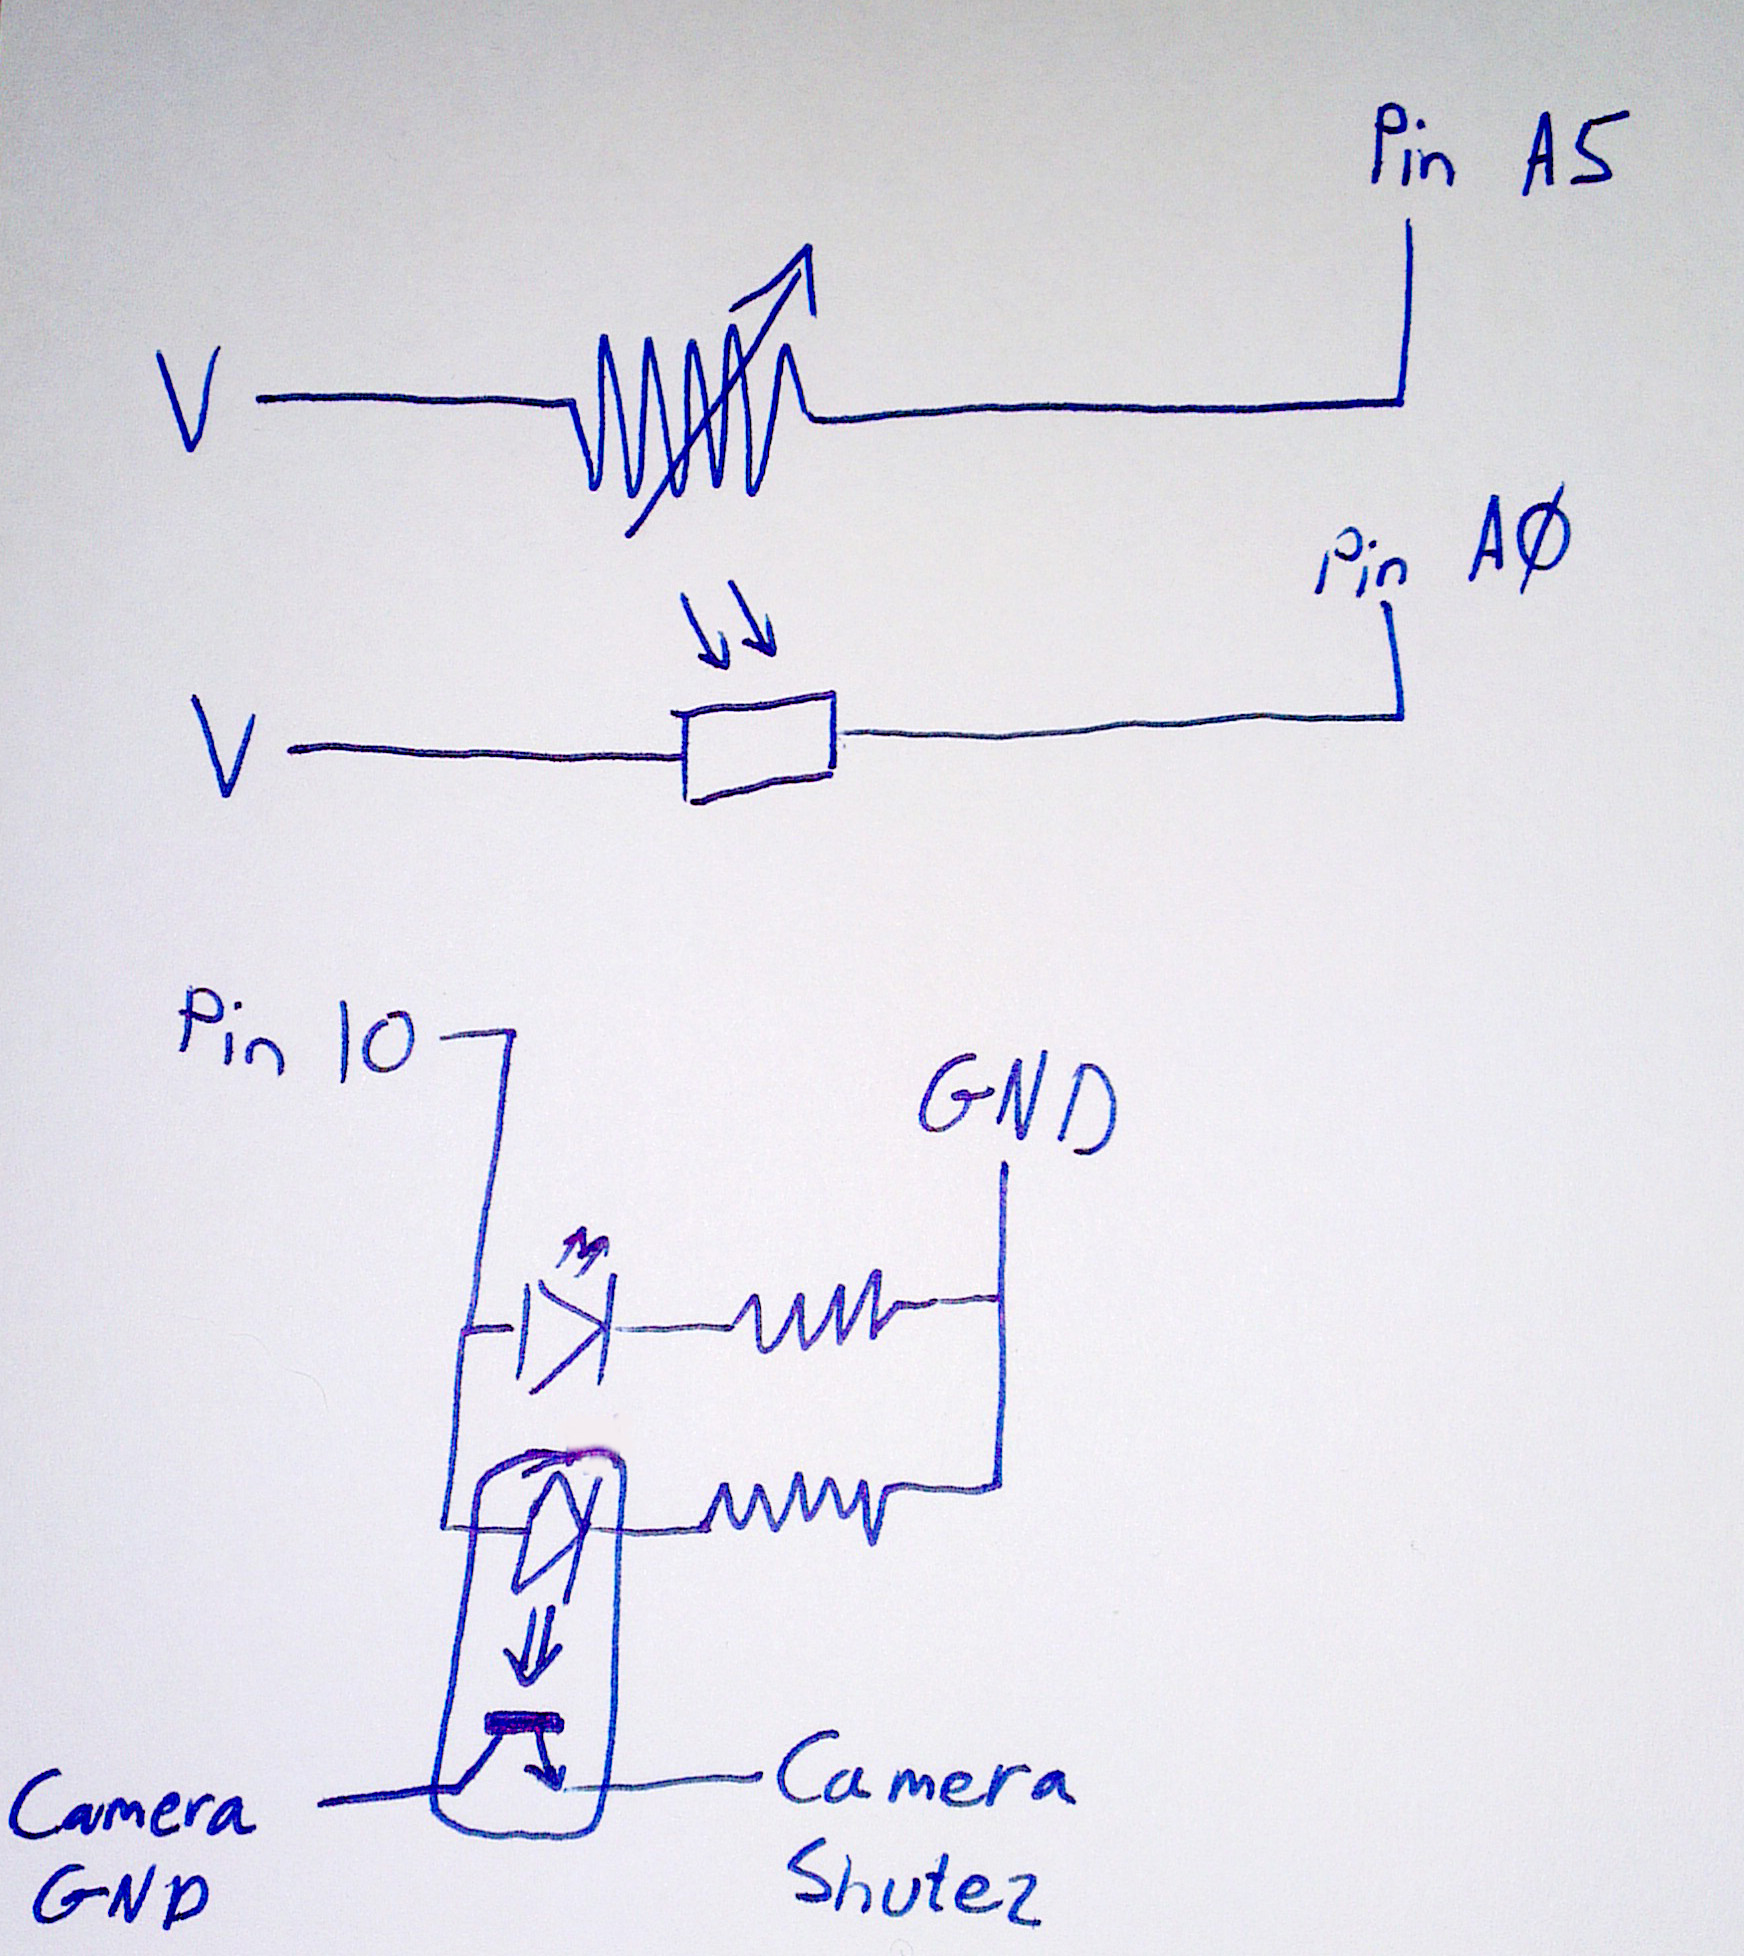 Pin A5
V
Pin AØ
V
Pin 10
GND
Camera
GND
Camera
Shuter